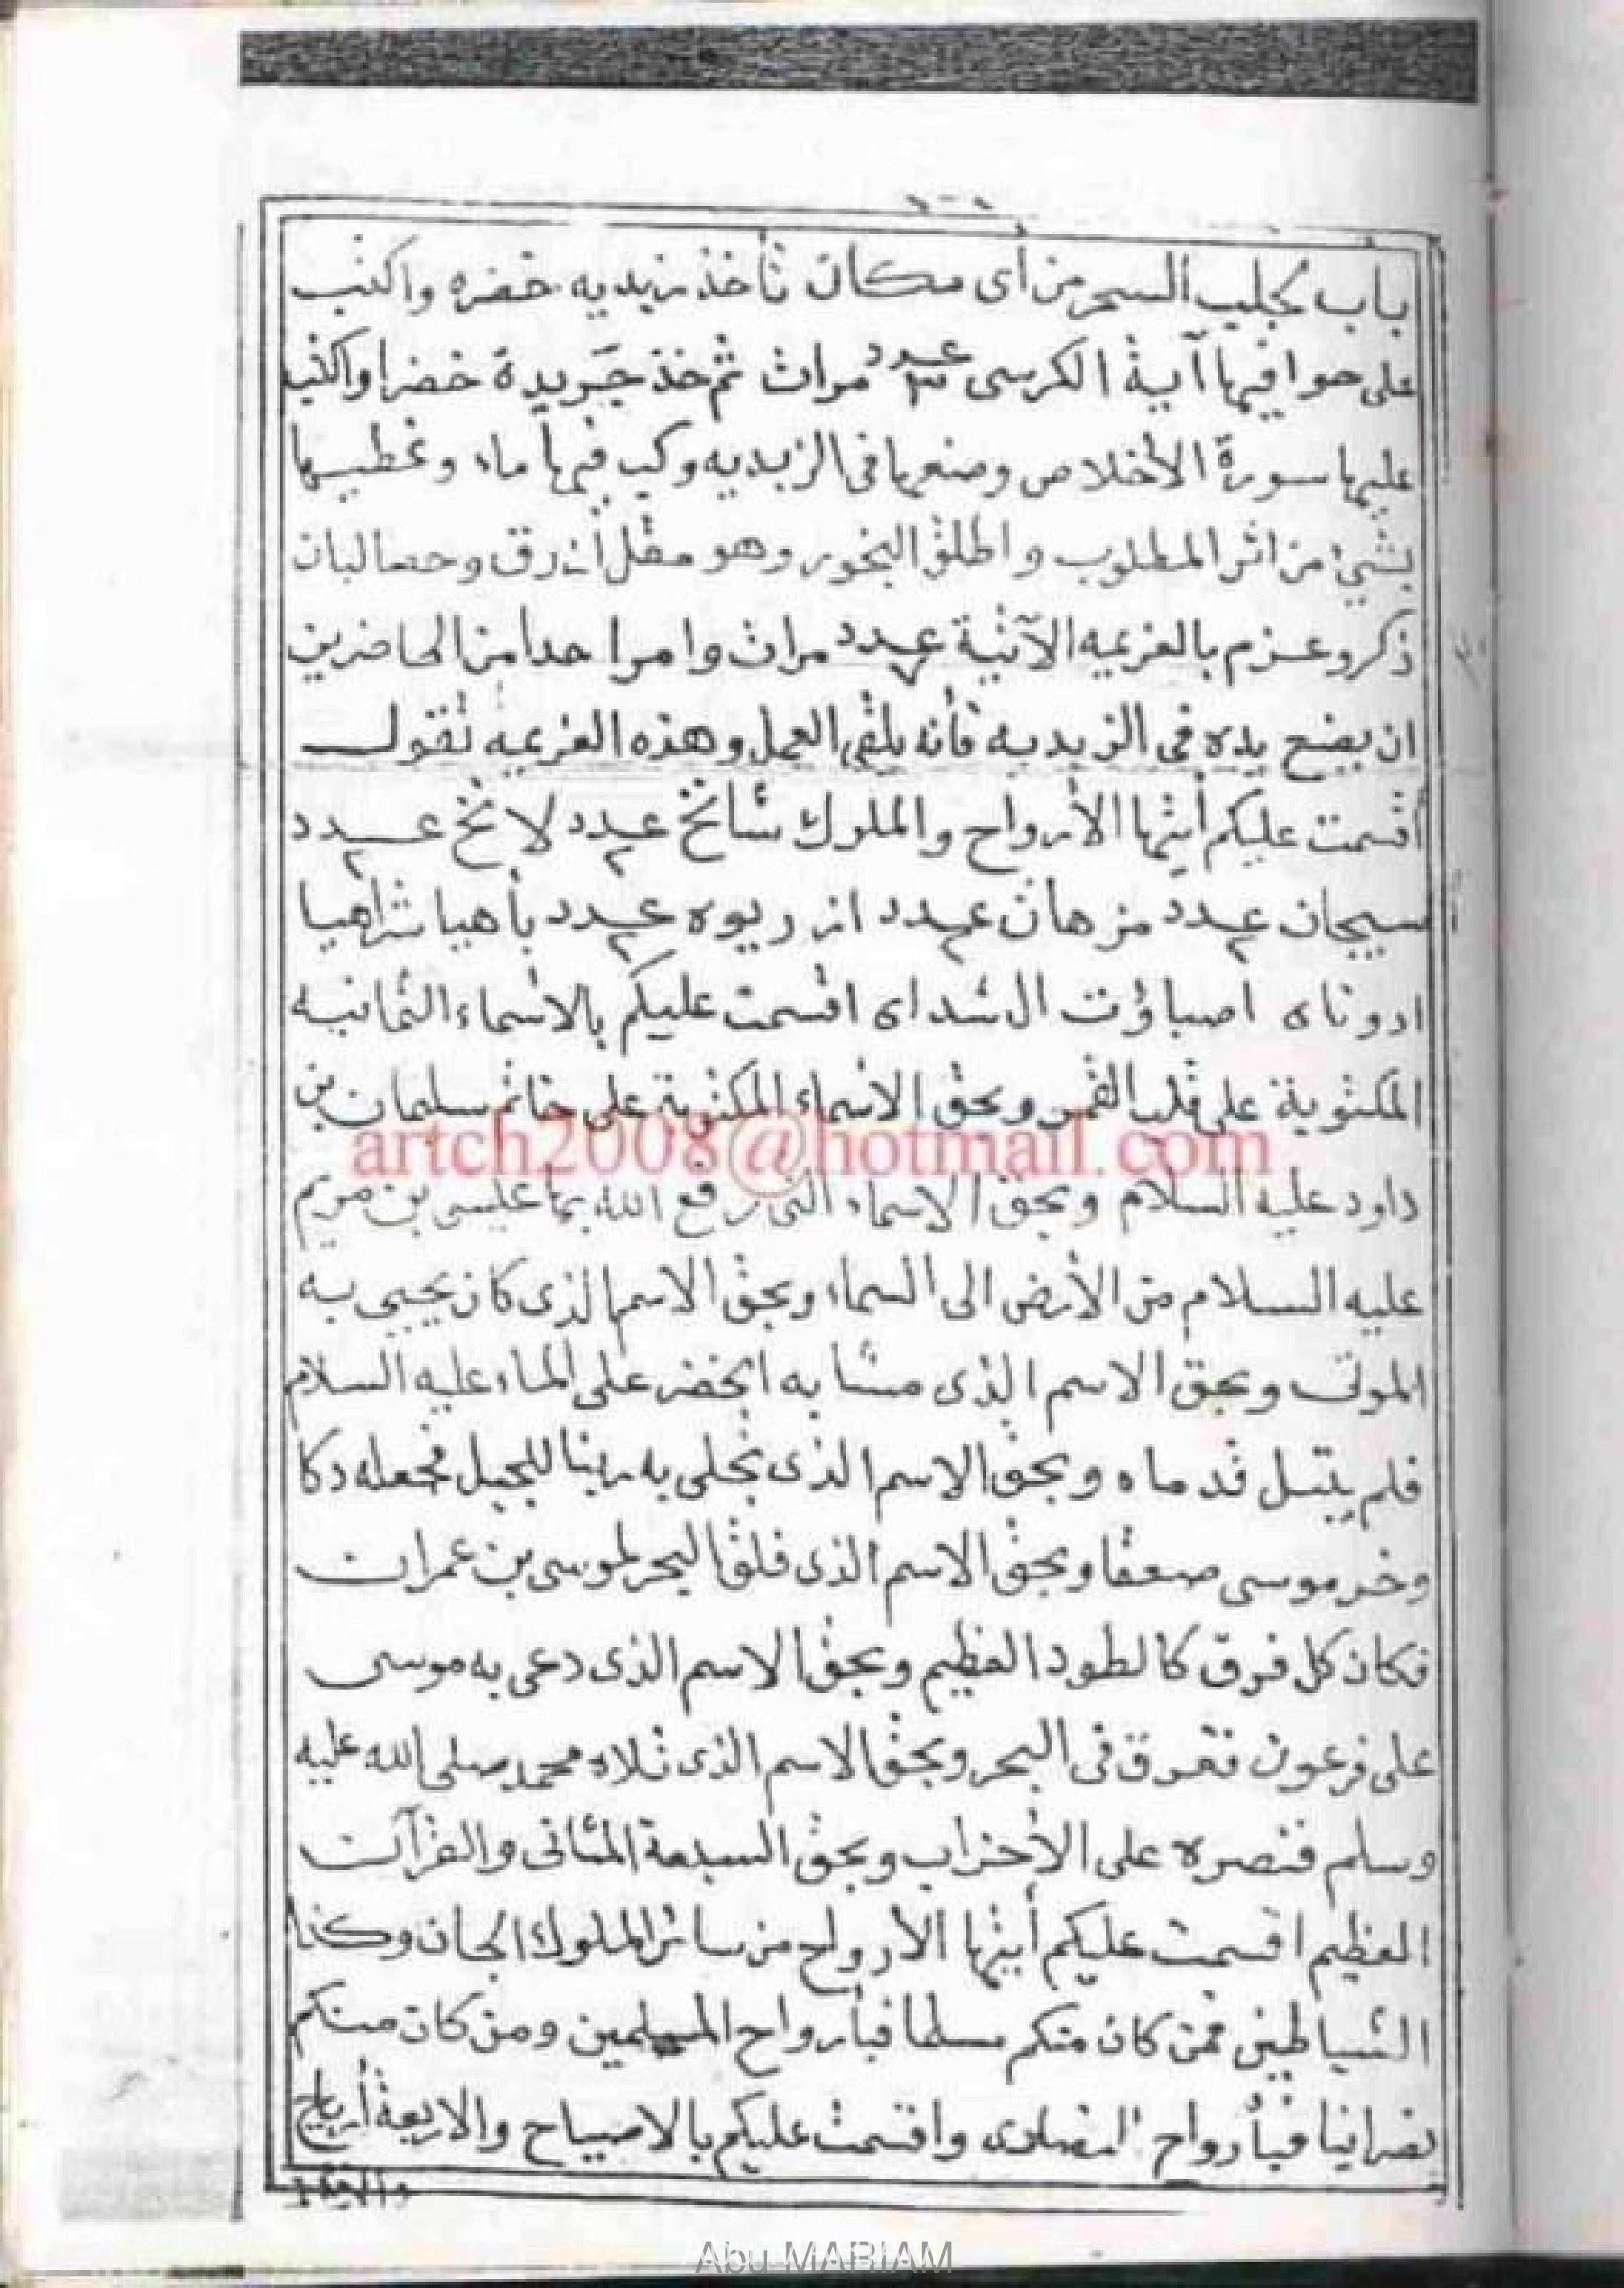 باب لجلب السحر من أى مكان تأخذ زبديه خضره واكتب
على حوافيها آية الكرسى عدد ٣ مرات ثم خذ جريدة خضرا واكتب
عليها سورة الأخلاص وضعها فى الزبديه وكب فيها ماء وغطيها
بشيئ من اثر المطلوب واطلق البخور وهو مقل أزرق وحصا لبان
ذكر وعزم بالعزيمه الآتية عدد مرات وامر احدا من الحاضرين
ان يضع يده فى الزبديه فأنه يلقى العمل وهذه العزيمه تقول
أقسمت عليكم أيتها الأرواح والملوك شانخ عدد ٢ لانخ عدد ٢
سيجان عدد ٢ مزهان عدد ٢ از ريوه عدد ٢ بأهيا شراهيا
ادوناى اصباؤت ال شداى اقسمت عليكم بالاسماء الثمانيه
المكتوبة على قلب القمر وبحق الاسماء المكتوبة على خاتم سليمان بن
artch2008@hotmail.com
داود عليه السلام وبحق الاسماء التى رفع الله بها عيسى بن مريم
عليه السلام من الأرض الى السماء وبحق الاسم الذى كان يحيى به
الموتى وبحق الاسم الذى مشا به الخضر على الماء عليه السلام
فلم يبتل قدماه وبحق الاسم الذى تجلى به ربنا للجبل فجعله دكا
وخر موسى صعقا وبحق الاسم الذى فلق البحر لموسى بن عمران
فكان كل فرق كالطود العظيم وبحق الاسم الذى دعى به موسى
على فرعون فغرق فى البحر وبحق الاسم الذى تلاه محمد صلى الله عليه
وسلم فنصره على الأحزاب وبحق السبعة المثانى والقرآن
العظيم اقسمت عليكم أيتها الأرواح من سائر الملوك الجان وكذا
الشياطين فمن كان منكم مسلما فبأرواح المسلمين ومن كان منكم
نصرانيا فبأرواح النصارى واقسمت عليكم بالاصباح والاربعة أرياح
Abu MARIAM